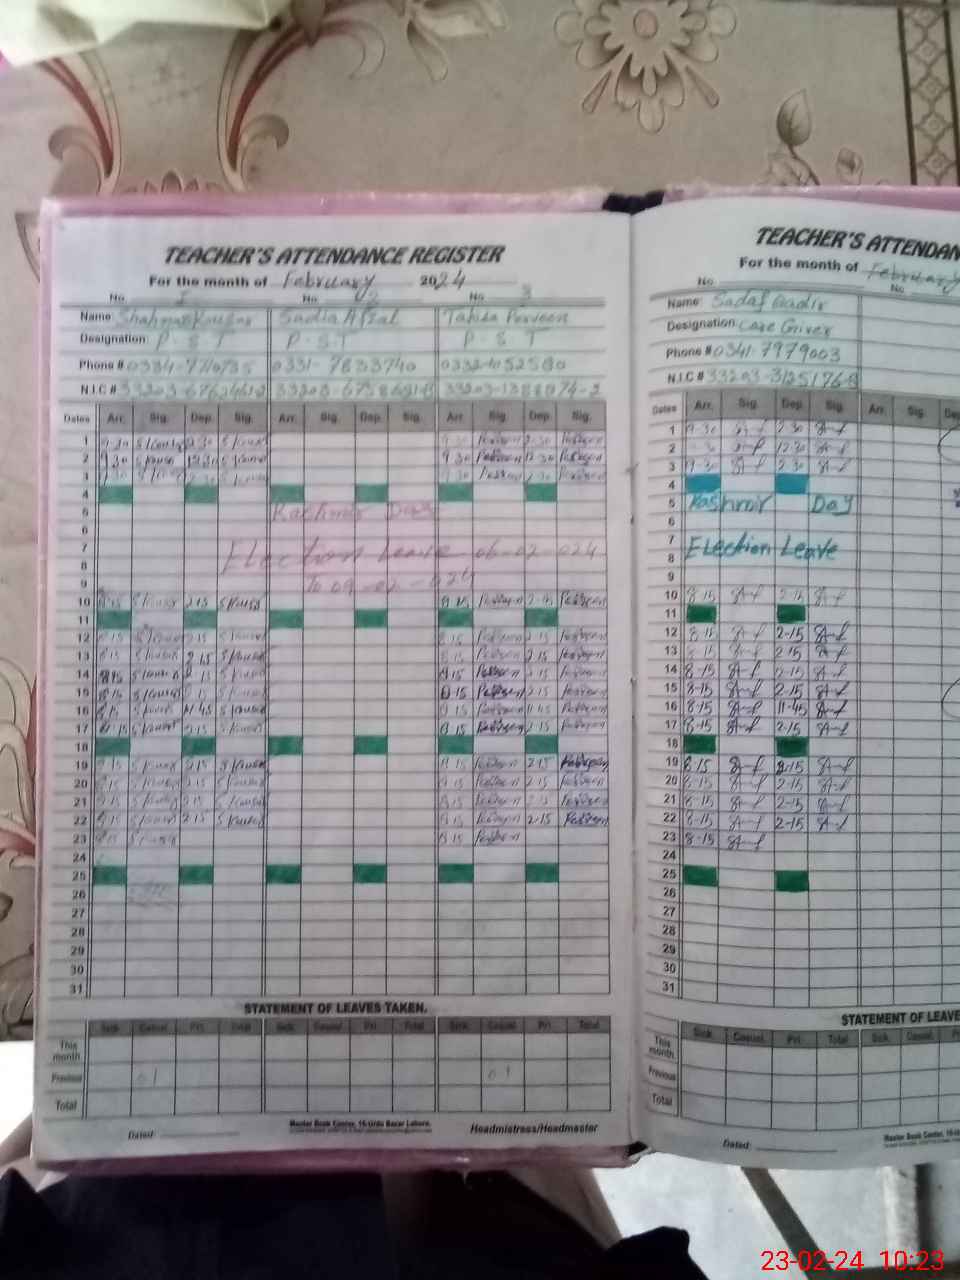 TEACHER'S ATTENDANCE REGISTER
For the month of February 2024
No. 1 No. 2 No. 3
Name: Shahnaz Kausar Sadia Afzal Tahira Perveen
Designation: P.S.T P.S.T P.S.T
Phone # 0331-7833740
N.I.C #
Dates Arr. Sig. Dep. Sig. Arr. Sig. Dep. Sig. Arr. Sig. Dep. Sig.
1 9.30 S Kausar 2.30 S Kausar 9.30 Perveen 2.30 Perveen
2 9.30 S Kausar 12.30 S Kausar 9.30 Perveen 12.30 Perveen
3 9.30 S Kausar 2.30 S Kausar 9.30 Perveen 2.30 Perveen
4
5 Kashmir Day
6
7 Election Leave 06-02-024
8
9 To 09-02-024
10 8.15 S Kausar 2.15 S Kausar 8.15 Perveen 2.15 Perveen
11
12 8.15 S Kausar 2.15 S Kausar 8.15 Perveen 2.15 Perveen
13 8.15 S Kausar 2.15 S Kausar 8.15 Perveen 2.15 Perveen
14 8.15 S Kausar 2.15 S Kausar 8.15 Perveen 2.15 Perveen
15 8.15 S Kausar 2.15 S Kausar 8.15 Perveen 2.15 Perveen
16 8.15 S Kausar 11.45 S Kausar 8.15 Perveen 11.45 Perveen
17 8.15 S Kausar 2.15 S Kausar 8.15 Perveen 2.15 Perveen
18
19 8.15 S Kausar 2.15 S Kausar 8.15 Perveen 2.15 Perveen
20 8.15 S Kausar 2.15 S Kausar 8.15 Perveen 2.15 Perveen
21 8.15 S Kausar 2.15 S Kausar 8.15 Perveen 2.15 Perveen
22 8.15 S Kausar 2.15 S Kausar 8.15 Perveen 2.15 Perveen
23 8.15 8.15 Perveen
24
25
26
27
28
29
30
31
STATEMENT OF LEAVES TAKEN.
Sick. Casual. Pri. Total Sick. Casual. Pri. Total Sick. Casual. Pri. Total
This month.
Previous 01 01
Total
Dated: Master Book Center, 16-Urdu Bazar Lahore. Headmistress/Headmaster
TEACHER'S ATTENDAN
For the month of February
No. No.
Name: Sadaf Qadir
Designation: Care Giver
Phone # 0341-7979003
N.I.C # 33203-3125176-8
Dates Arr. Sig. Dep. Sig. Arr. Sig. Dep
1 9.30 2.30
2 12.30
3 9.30 2.30
4
5 Kashmir Day
6
7 Election Leave
8
9
10 8-15 2-15
11
12 8-15 2-15
13 8-15 2-15
14 8-15 2-15
15 8-15 2-15
16 8-15 11-45
17 8-15 2-15
18
19 8.15 2-15
20 8-15 2-15
21 8-15 2-15
22 8-15 2-15
23 8-15
24
25
26
27
28
29
30
31
STATEMENT OF LEAVE
Sick. Casual. Pri. Total Sick. Casual. Pri
This month.
Previous
Total
Dated: Master Book Center, 16-
23-02-24 10:23